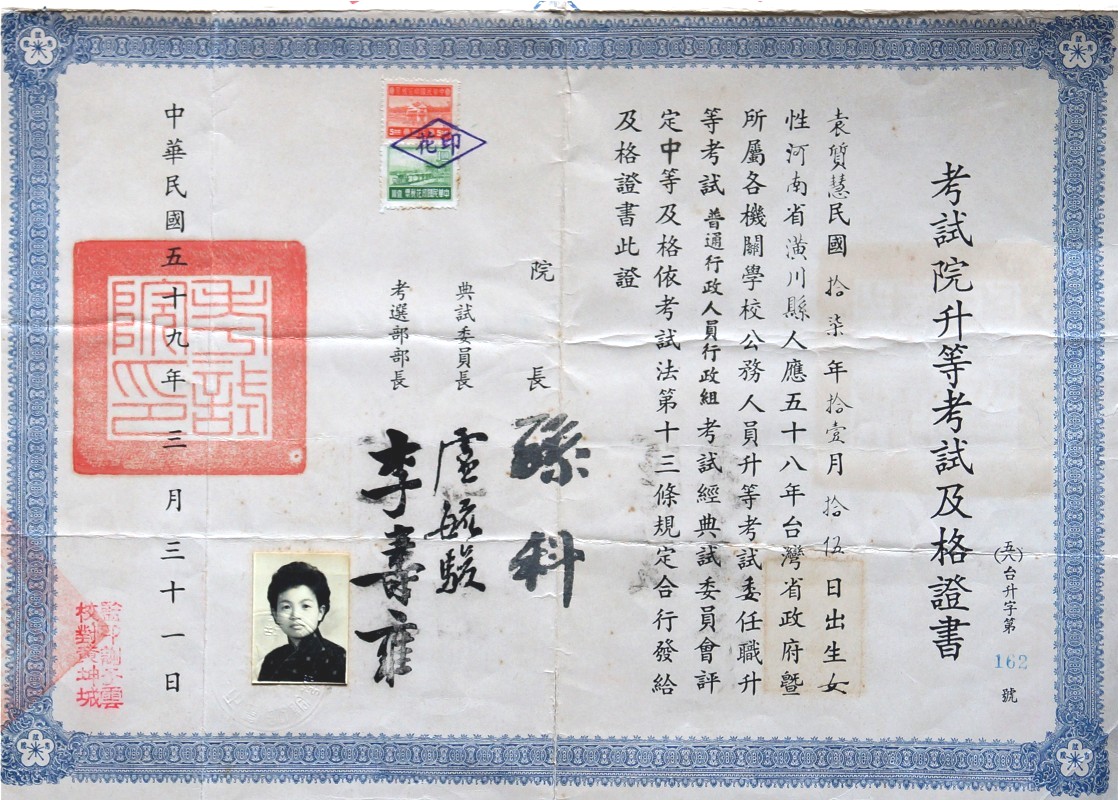 考試院升等考試及格證書
(五八)台升字第162號
袁質慧民國拾柒年拾壹月拾伍日出生女
性河南省潢川縣人應五十八年台灣省政府暨
所屬各機關學校公務人員升等考試委任職升
等考試普通行政人員行政組考試經典試委員會評
定中等及格依考試法第十三條規定合行發給
及格證書此證
院長 孫科
典試委員長 盧毓駿
考選部部長 李壽雍
印花
中華民國五十九年三月三十一日
考試院印
校對黃坤城